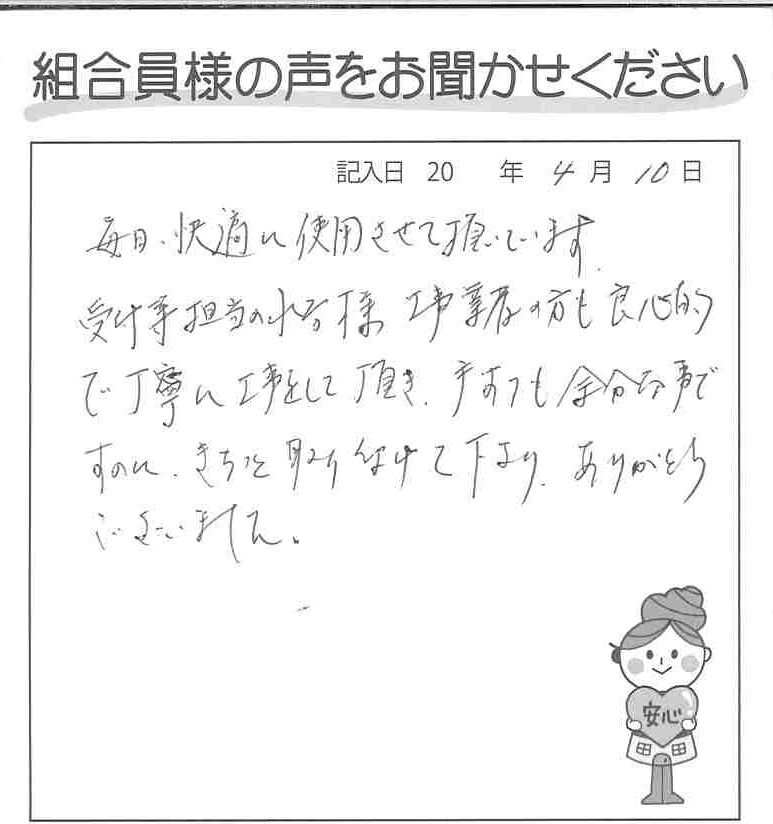 組合員様の声をお聞かせください
記入日 20 年 4 月 10 日
毎日、快適に使用させて頂いています。
受付等担当の 様 工事業者の方も良心的
で丁寧に工事をして頂き、 も余分な事で
すのに、きちっと取り付けて下さり、ありがとう
ございました。
安心